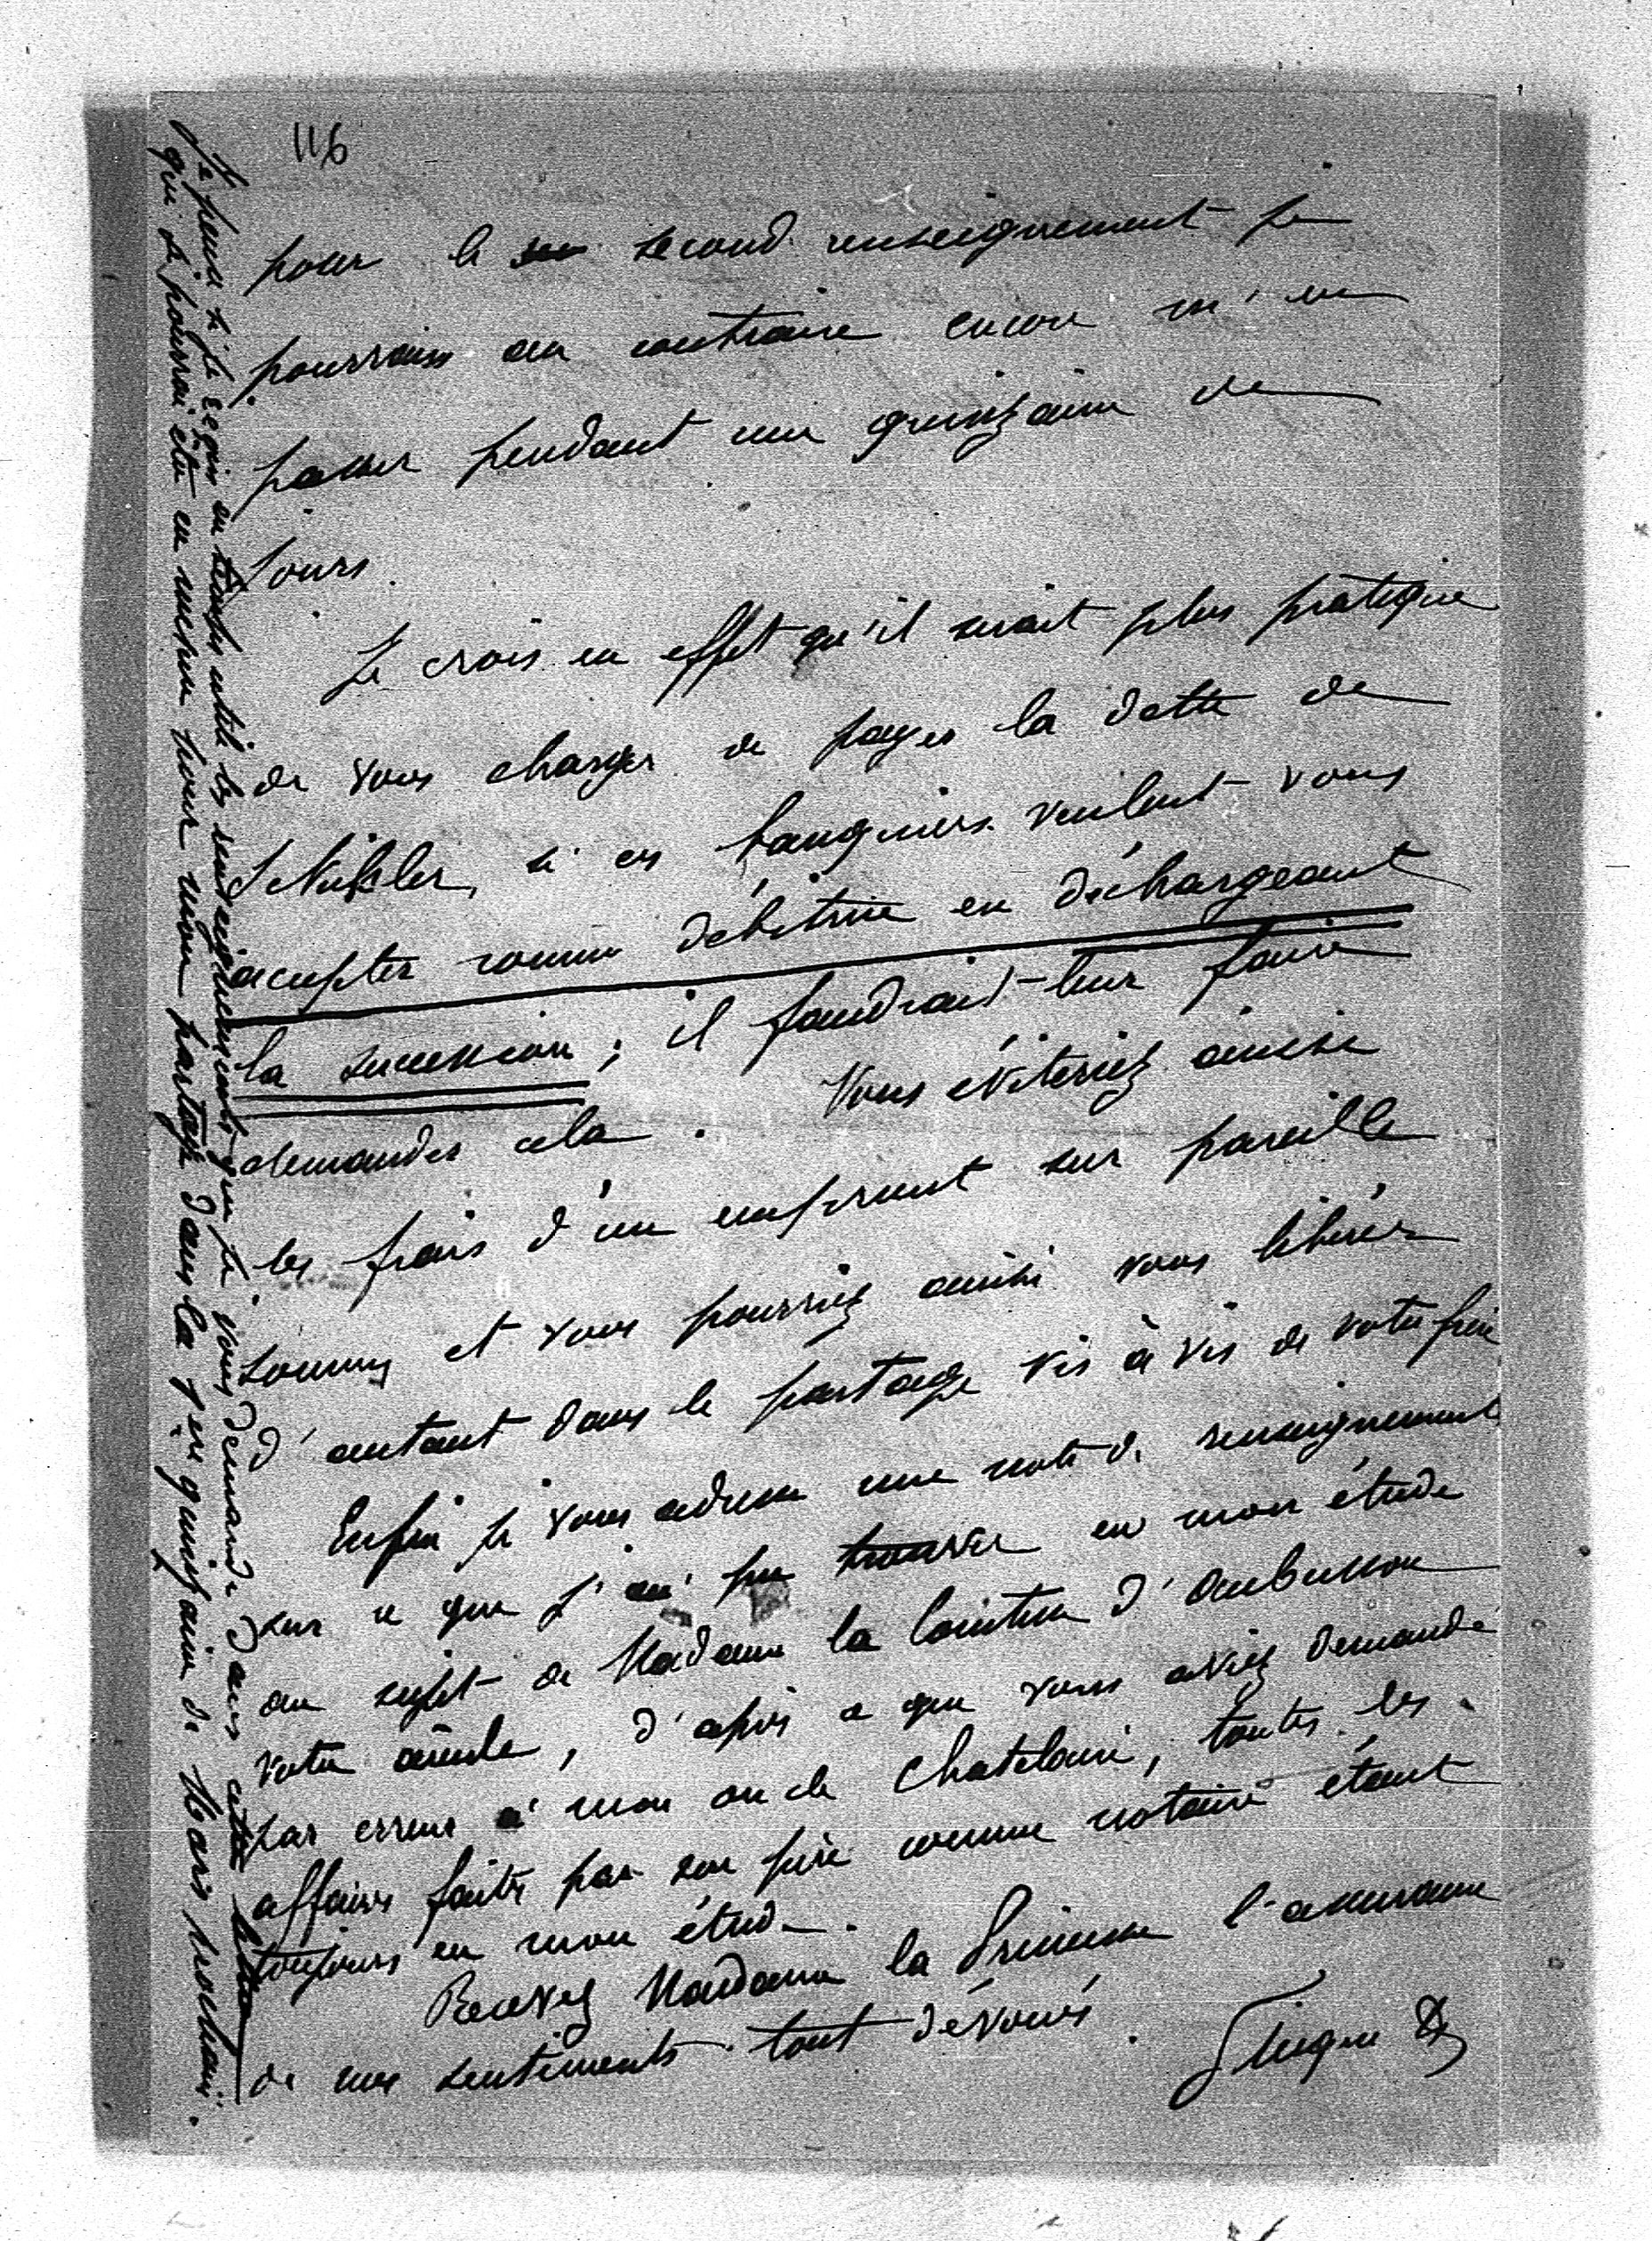 116
pour le second renseignement je
pourrais au contraire encore m'en
passer pendant une quinzaine de
jours.
Je crois en effet qu'il serait plus pratique
de vous charger de payer la dette de
Schikler, si ces banquiers veulent vous
accepter comme débitrice en déchargeant
la succession ; il faudrait leur faire
demander cela. Vous éviteriez ainsi
les frais d'un emprunt sur pareille
somme et vous pourriez ainsi vous libérer
d'autant dans le partage vis à vis de votre frère
Enfin je vous adresse une note de renseignements
sur ce que j'ai pu trouver en mon étude
au sujet de Madame la Comtesse d'Aubusson
votre aïeule, d'après ce que vous aviez demandé
par erreur à mon de Chatelain, toutes les
affaires faites par son père comme notaire étant
toujours en mon étude.
Recevez Madame la Princesse l'assurance
de mes sentiments tout dévoués.
Je pense si je reçois en temps utile les renseignements que je vous demande dans cette lettre
qui je pourrai être en mesure pour mon partage dans la 1ère quinzaine de Mars prochain.